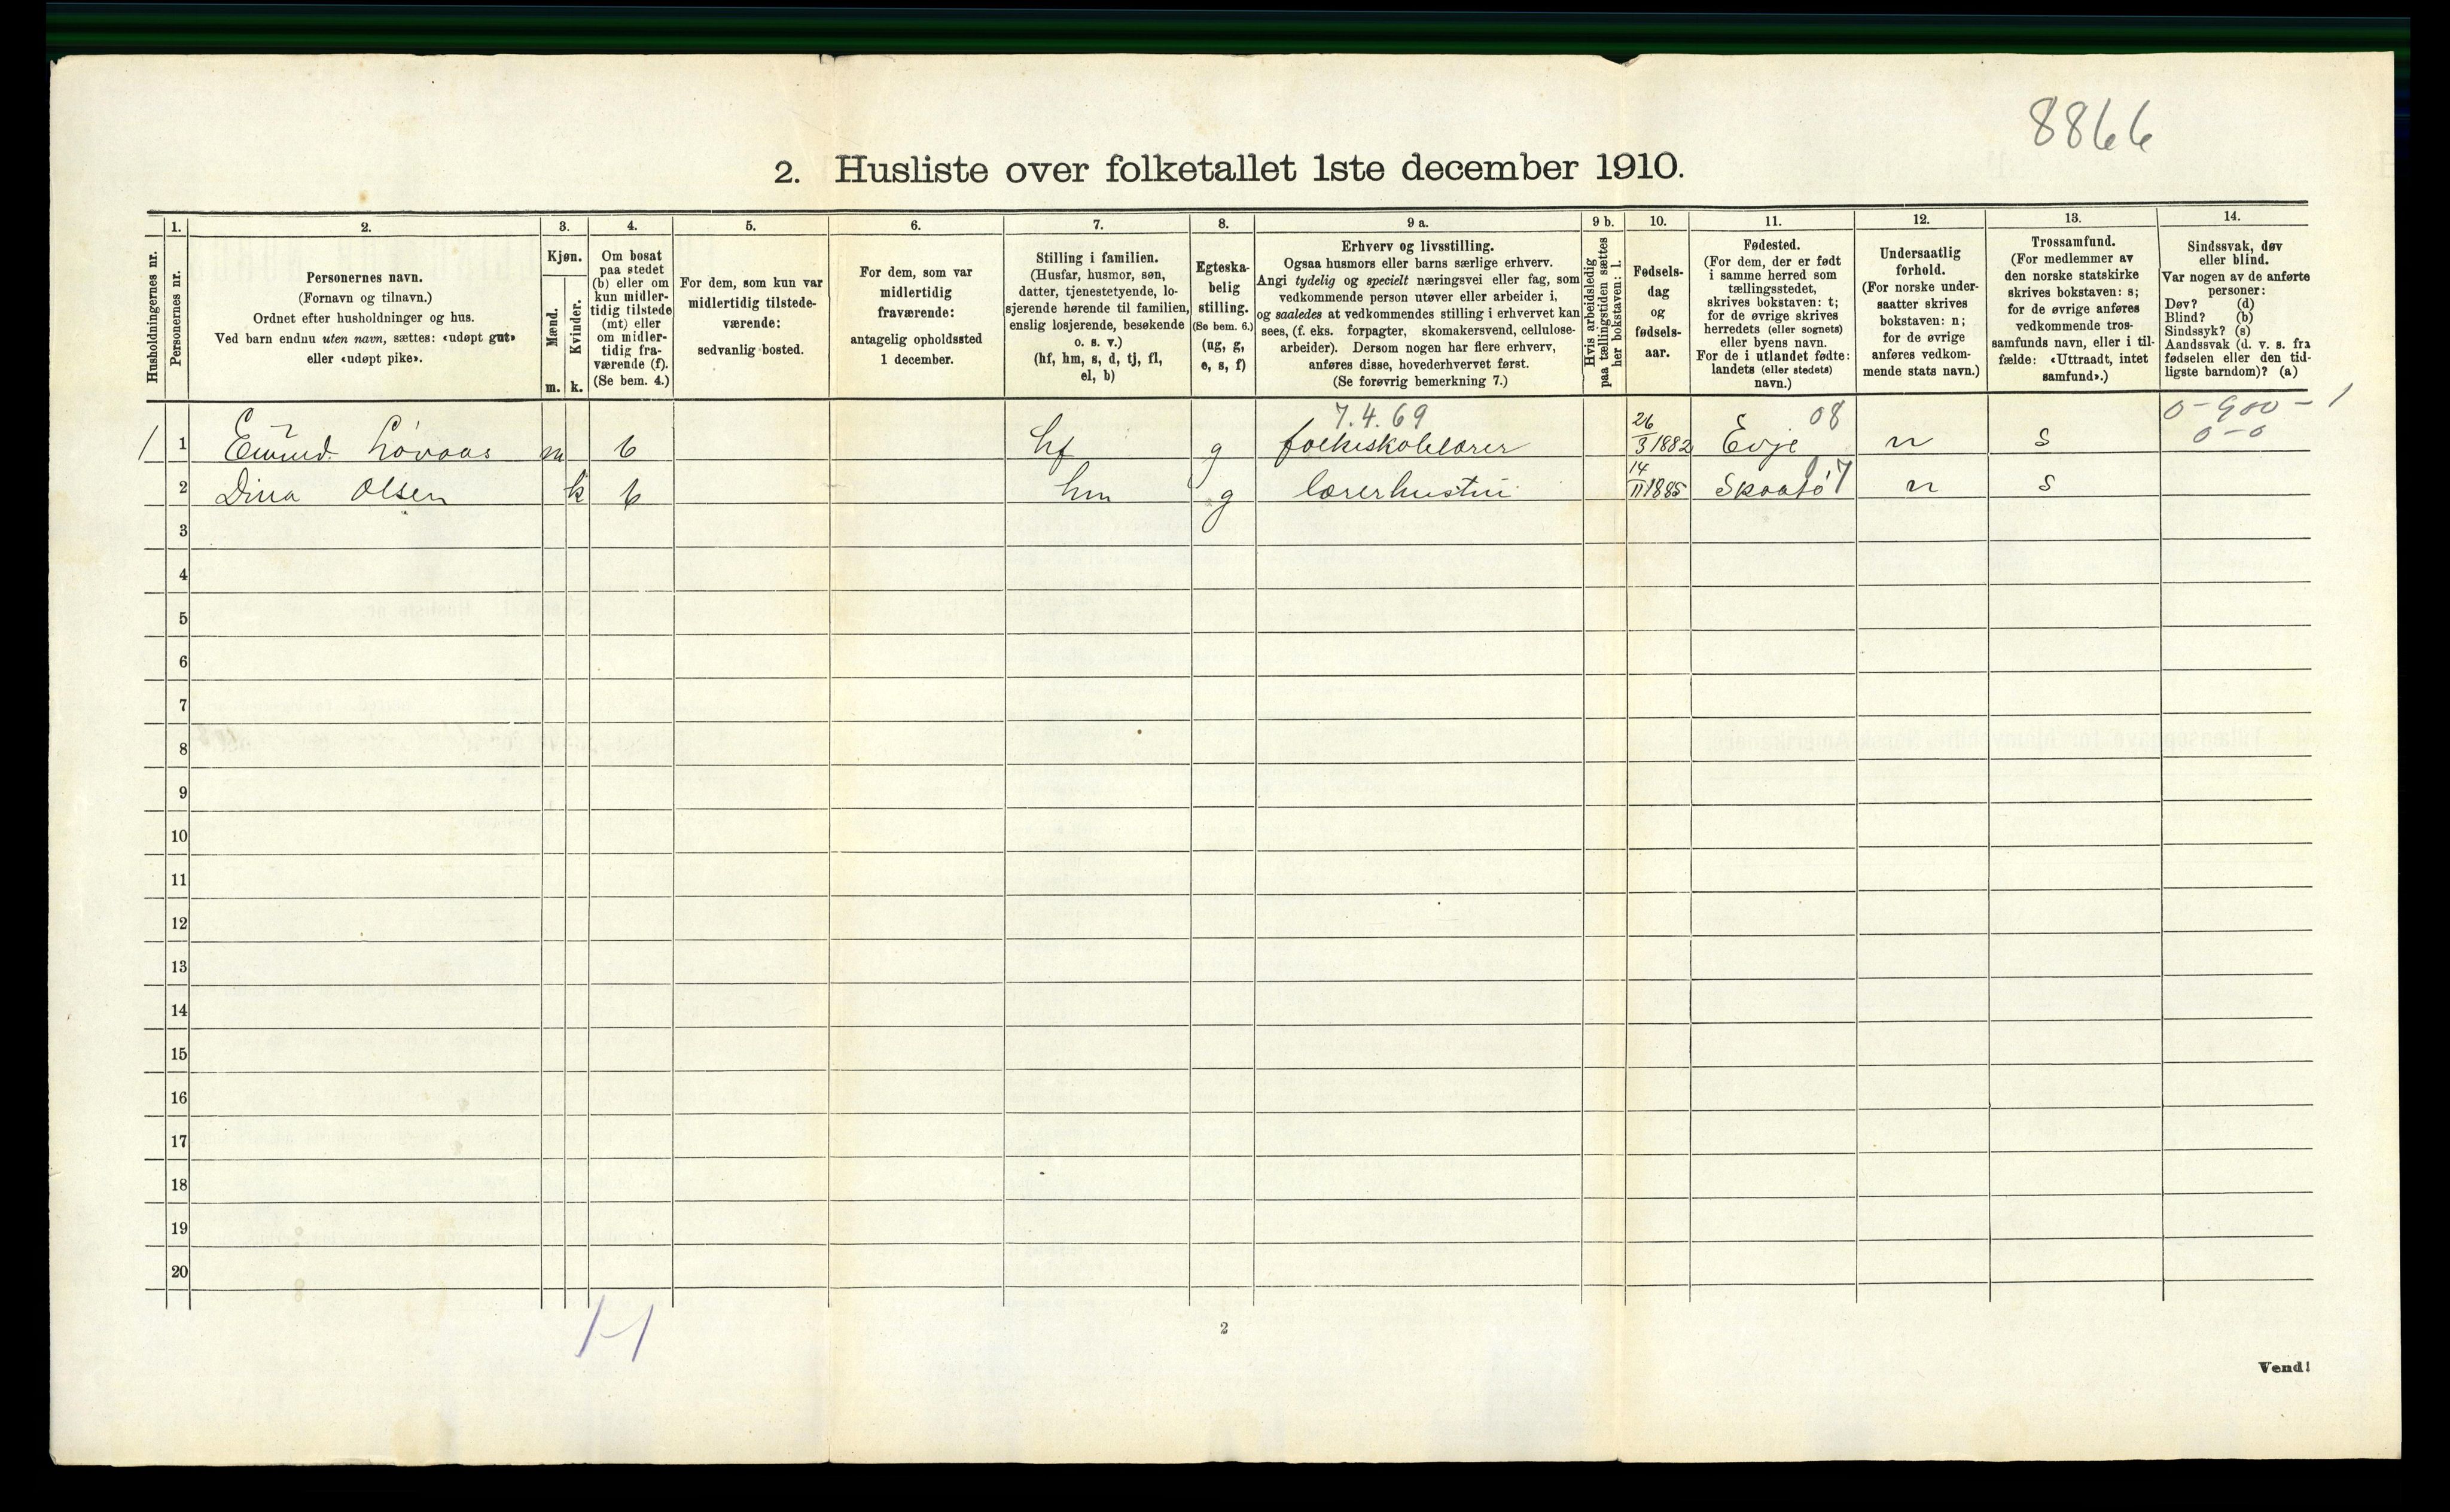 8866
2. Husliste over folketallet 1ste december 1910.
Husholdningernes nr.
1.
Personernes nr.
2.
Personernes navn.
(Fornavn og tilnavn.)
Ordnet efter husholdninger og hus.
Ved barn endnu uten navn, sættes: «udøpt gut»
eller «udøpt pike».
3.
Kjøn.
Mænd.
Kvinder.
m. k.
4.
Om bosat
paa stedet
(b) eller om
kun midler-
tidig tilstede
(mt) eller
om midler-
tidig fra-
værende (f).
(Se bem. 4.)
5.
For dem, som kun var
midlertidig tilstede-
værende:
sedvanlig bosted.
6.
For dem, som var
midlertidig
fraværende:
antagelig opholdssted
1 december.
7.
Stilling i familien.
(Husfar, husmor, søn,
datter, tjenestetyende, lo-
sjerende hørende til familien,
enslig losjerende, besøkende
o. s. v.)
(hf, hm, s, d, tj, fl,
el, b)
8.
Egteska-
belig
stilling.
(Se bem. 6.)
(ug, g,
e, s, f)
9 a.
Erhverv og livsstilling.
Ogsaa husmors eller barns særlige erhverv.
Angi tydelig og specielt næringsvei eller fag, som
vedkommende person utøver eller arbeider i,
og saaledes at vedkommendes stilling i erhvervet kan
sees, (f. eks. forpagter, skomakersvend, cellulose-
arbeider). Dersom nogen har flere erhverv,
anføres disse, hovederhvervet først.
(Se forøvrig bemerkning 7.)
9 b.
Hvis arbeidsledig
paa tællingstiden sættes
her bokstaven: l.
10.
Fødsels-
dag
og
fødsels-
aar.
11.
Fødested.
(For dem, der er født
i samme herred som
tællingsstedet,
skrives bokstaven: t;
for de øvrige skrives
herredets (eller sognets)
eller byens navn.
For de i utlandet fødte:
landets (eller stedets)
navn.)
12.
Undersaatlig
forhold.
(For norske under-
saatter skrives
bokstaven: n;
for de øvrige
anføres vedkom-
mende stats navn.)
13.
Trossamfund.
(For medlemmer av
den norske statskirke
skrives bokstaven: s;
for de øvrige anføres
vedkommende tros-
samfunds navn, eller i til-
fælde: «Uttraadt, intet
samfund».)
14.
Sindssvak, døv
eller blind.
Var nogen av de anførte
personer:
Døv? (d)
Blind? (b)
Sindssyk? (s)
Aandssvak (d. v. s. fra
fødselen eller den tid-
ligste barndom)? (a)
7.4.69 08 0-900-1
1 1 Eivind Løvaas m b hf g folkeskolelærer 26/3 1882 Evje n s 0-0
2 Dina Olsen k b hm g lærerhustru 14/11 1885 Skaatø 7 n s
3
4
5
6
7
8
9
10
11
12
13
14
15
16
17
18
19
20
1-1
2
Vend!